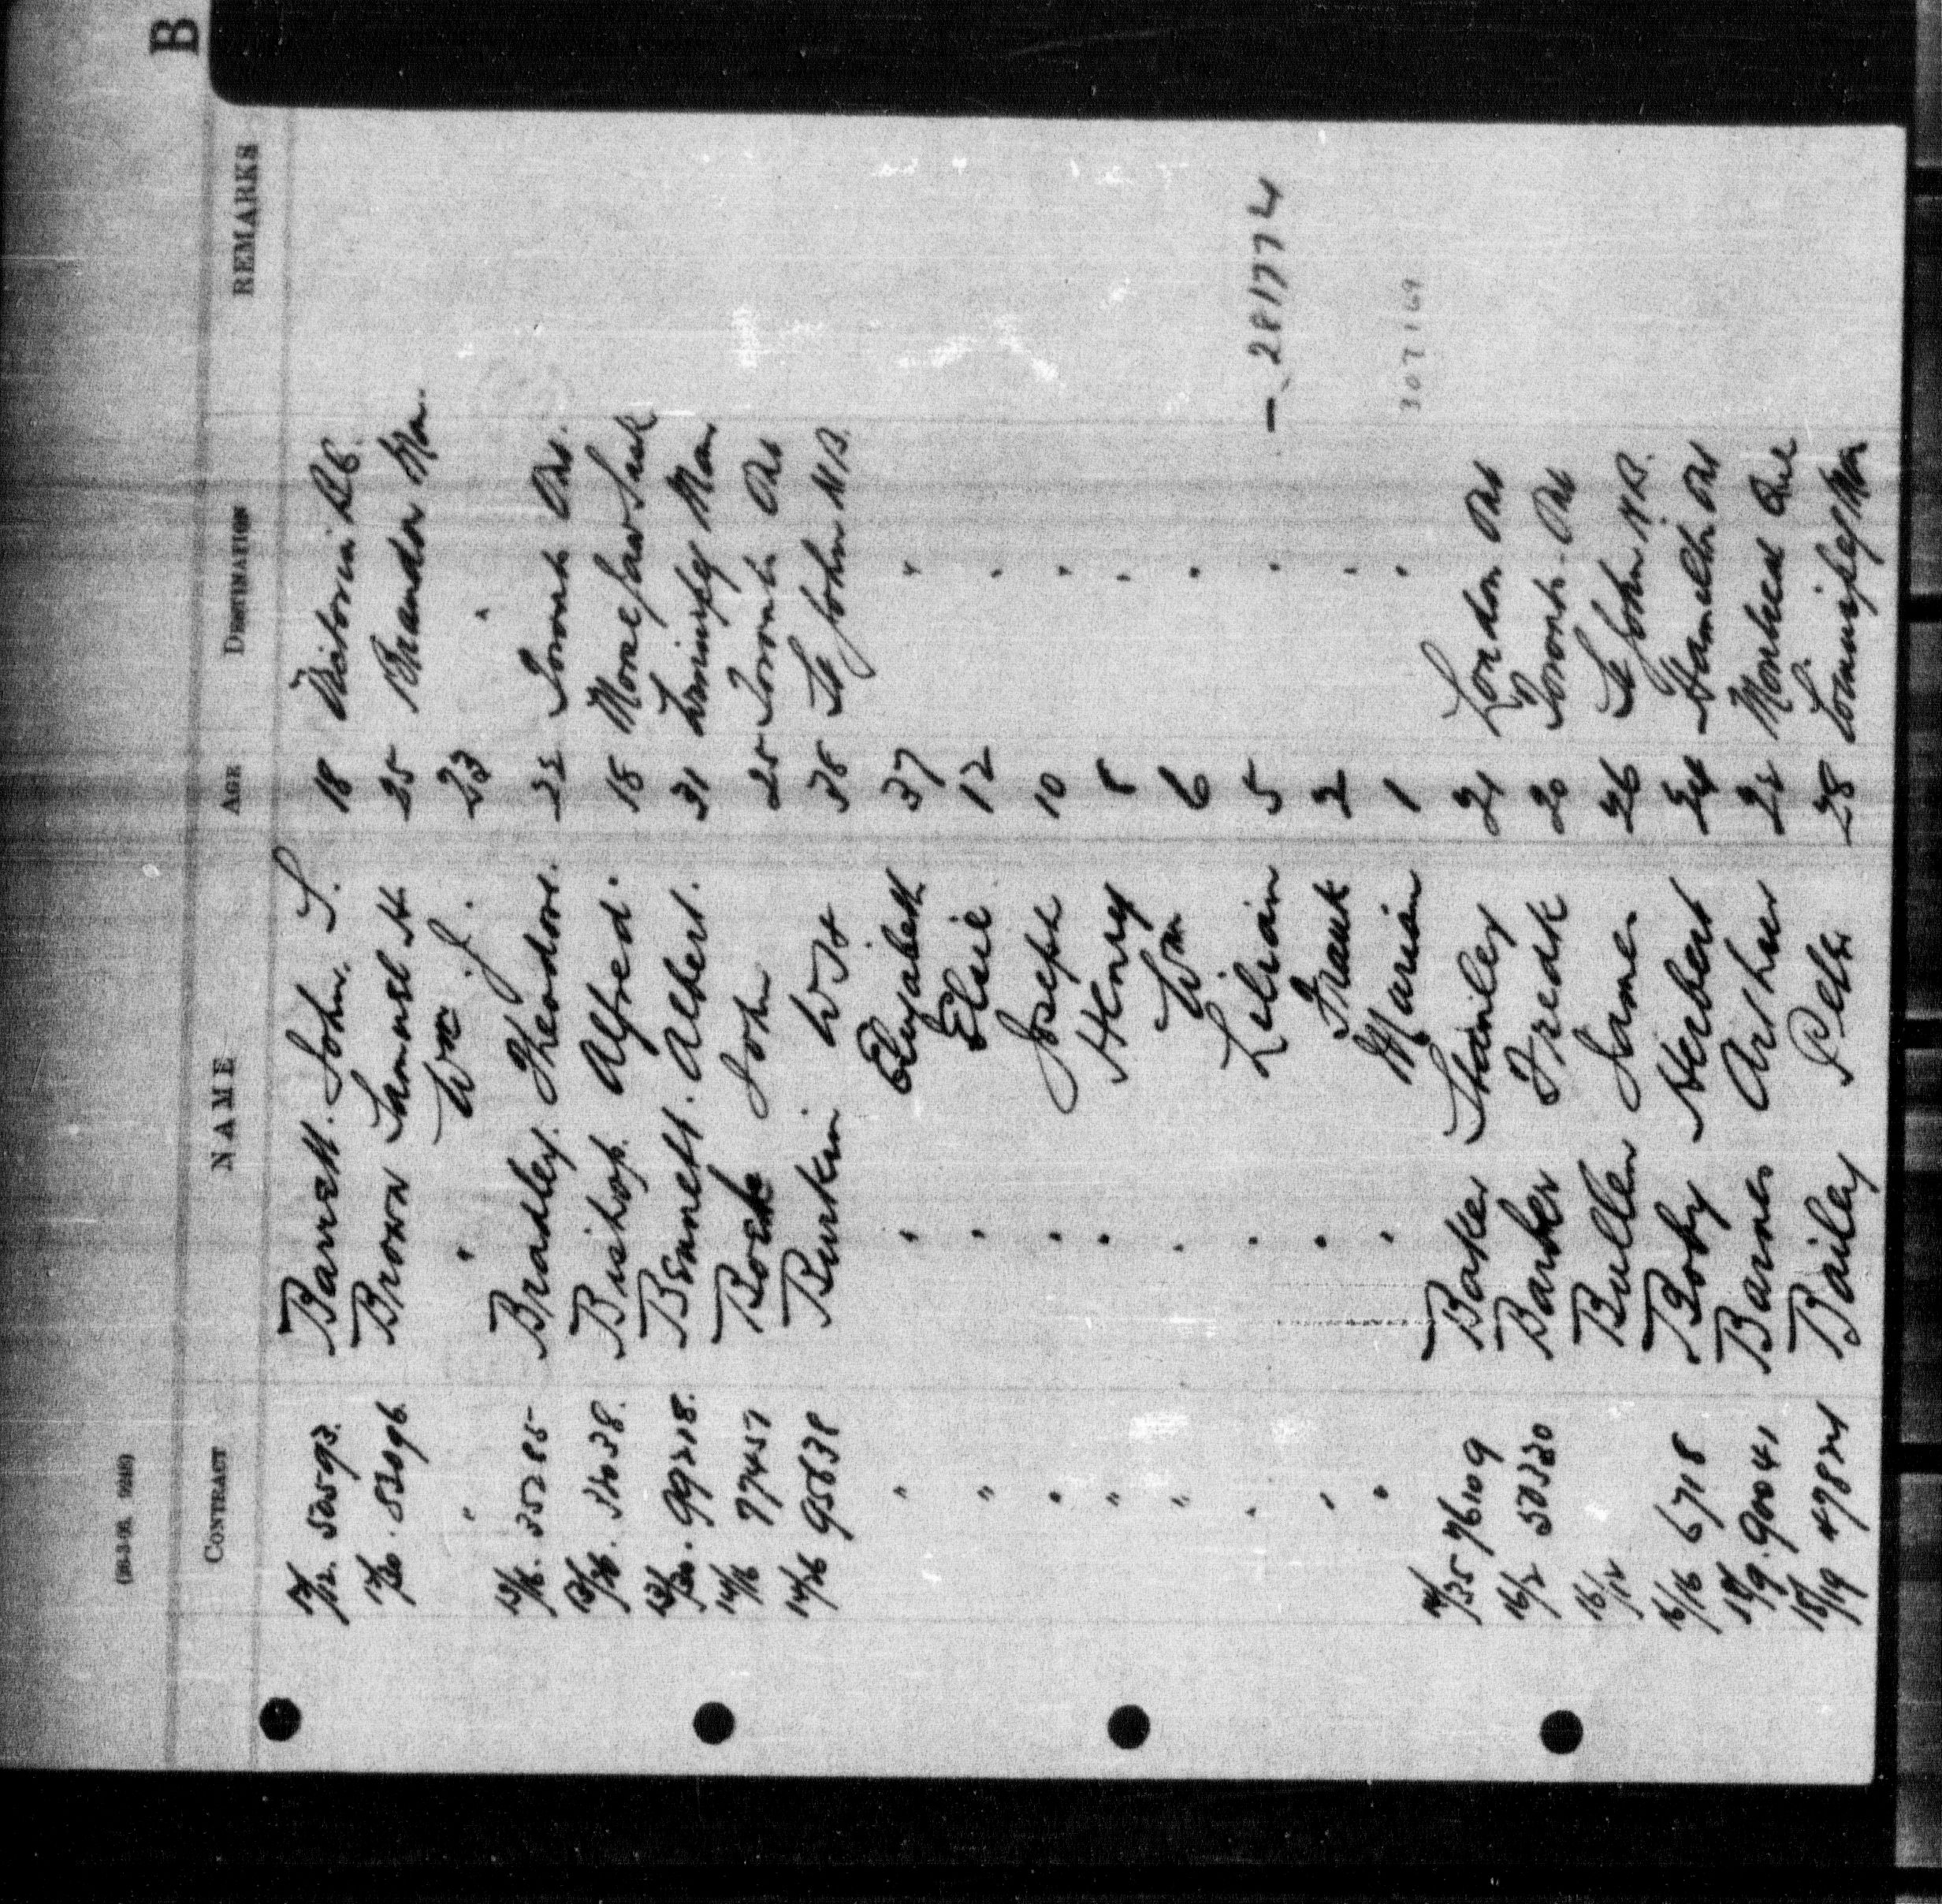 B
CONTRACT NAME AGE DESTINATION REMARKS
17/12. 50593. Barrett. John. S. 18 Victoria B.C.
17/20. 53096. Brown Samuel H. 25 Brandon Man.
" " Wm J. 23 "
13/16. 35285 Bradley. Theodore. 22 Toronto Ont.
13/26. 32038. Bishop. Alfred. 18 Moose Jaw Sask
13/30. 99218. Bennett. Albert. 31 Winnipeg Man
14/16 77457 John 25 Toronto Ont
14/26 95638 Burkin W H 38 St John N.B.
" " Elizabeth 37 "
" " Elsie 12 "
" " Joseph 10 "
" " Henry 8 "
" " Wm 6 "
" " Lilian 5 " - 281774
" " Frank 2 "
" " Marian 1 " 307169
14/35 76109 Baker Stanley 21 London Ont
16/2 50330 Barber Fredk 20 Toronto. Ont
16/12 Buller James 26 St John N.B.
16/16 6718 Boby Herbert 24 Hamilton Ont
18/9. 90041 Barnes Arthur 22 Montreal Que
18/19 49824 Bailey Peter 28 Winnipeg Man